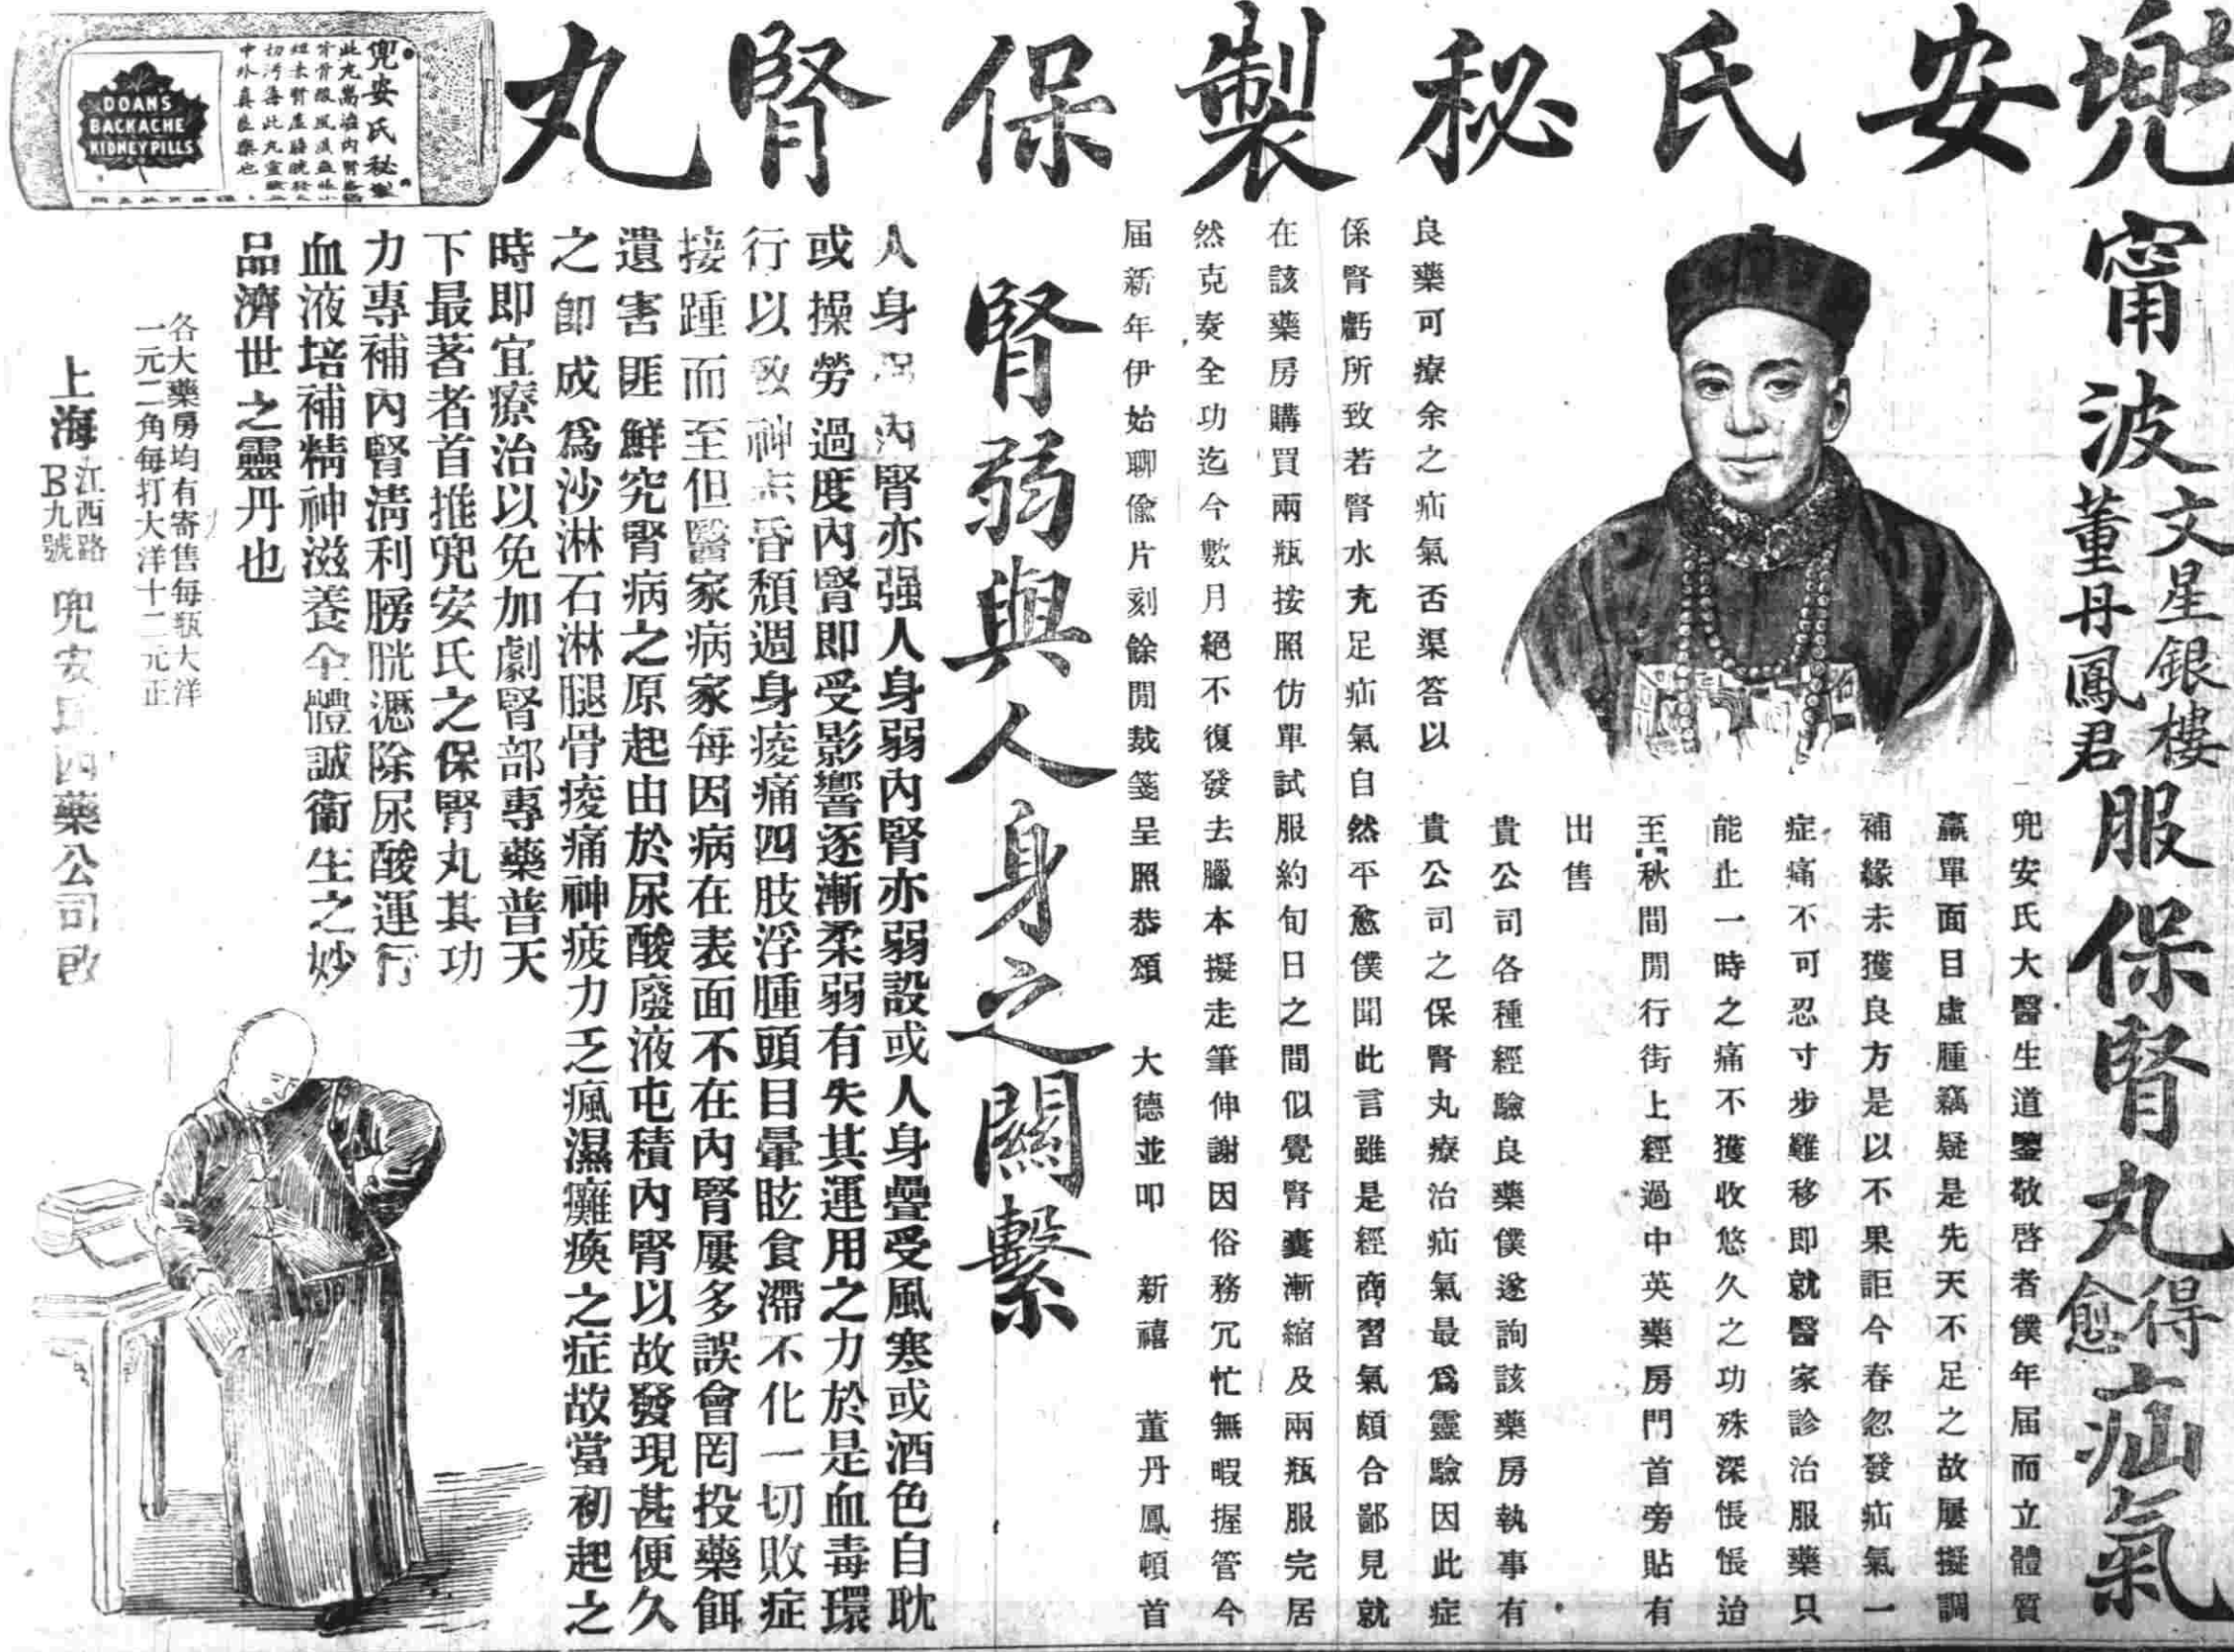 兜安氏秘製保腎丸
甯波文星銀樓董丹鳳君服保腎丸得愈疝氣
兜安氏大醫生道鑒敬啓者僕年届而立體質
羸單面目虛腫竊疑是先天不足之故屢擬調
補緣未獲良方是以不果詎今春忽發疝氣一
症痛不可忍寸步難移即就醫家診治服藥只
能止一時之痛不獲收悠久之功殊深悵悵治
至秋間閒行街上經過中英藥房門首旁貼有
出售
貴公司各種經驗良藥僕遂詢該藥房執事有
良藥可療余之疝氣否渠答以 貴公司之保腎丸療治疝氣最爲靈驗因此症
係腎虧所致若腎水充足疝氣自然平愈僕聞此言雖是經商習氣頗合鄙見就
在該藥房購買兩瓶按照仿單試服約旬日之間似覺腎囊漸縮及兩瓶服完居
然克奏全功迄今數月絕不復發去臘本擬走筆伸謝因俗務冗忙無暇握管今
届新年伊始聊偸片刻餘閒裁箋呈照恭頌 大德並叩 新禧 董丹鳳頓首
腎弱與人身之關繫
人身 內腎亦强人身弱內腎亦弱設或人身疊受風寒或酒色自耽
或操勞過度內腎即受影響逐漸柔弱有失其運用之力於是血毒環
行以致神志昏頹週身痠痛四肢浮腫頭目暈眩食滯不化一切敗症
接踵而至但醫家病家每因病在表面不在內腎屢多誤會罔投藥餌
遺害匪鮮究腎病之原起由於尿酸廢液屯積內腎以故發現甚便久
之卽成爲沙淋石淋腿骨痠痛神疲力乏瘋濕癱瘓之症故當初起之
時即宜療治以免加劇腎部專藥普天
下最著者首推兜安氏之保腎丸其功
力專補內腎淸利膀胱瀝除尿酸運行
血液培補精神滋養全體誠衞生之妙
品濟世之靈丹也
各大藥房均有寄售每瓶大洋
一元二角每打大洋十二元正
上海 江西路 B九號 兜安氏西藥公司啟
兜安氏秘製
中外眞良藥也
DOANS
BACKACHE
KIDNEY PILLS